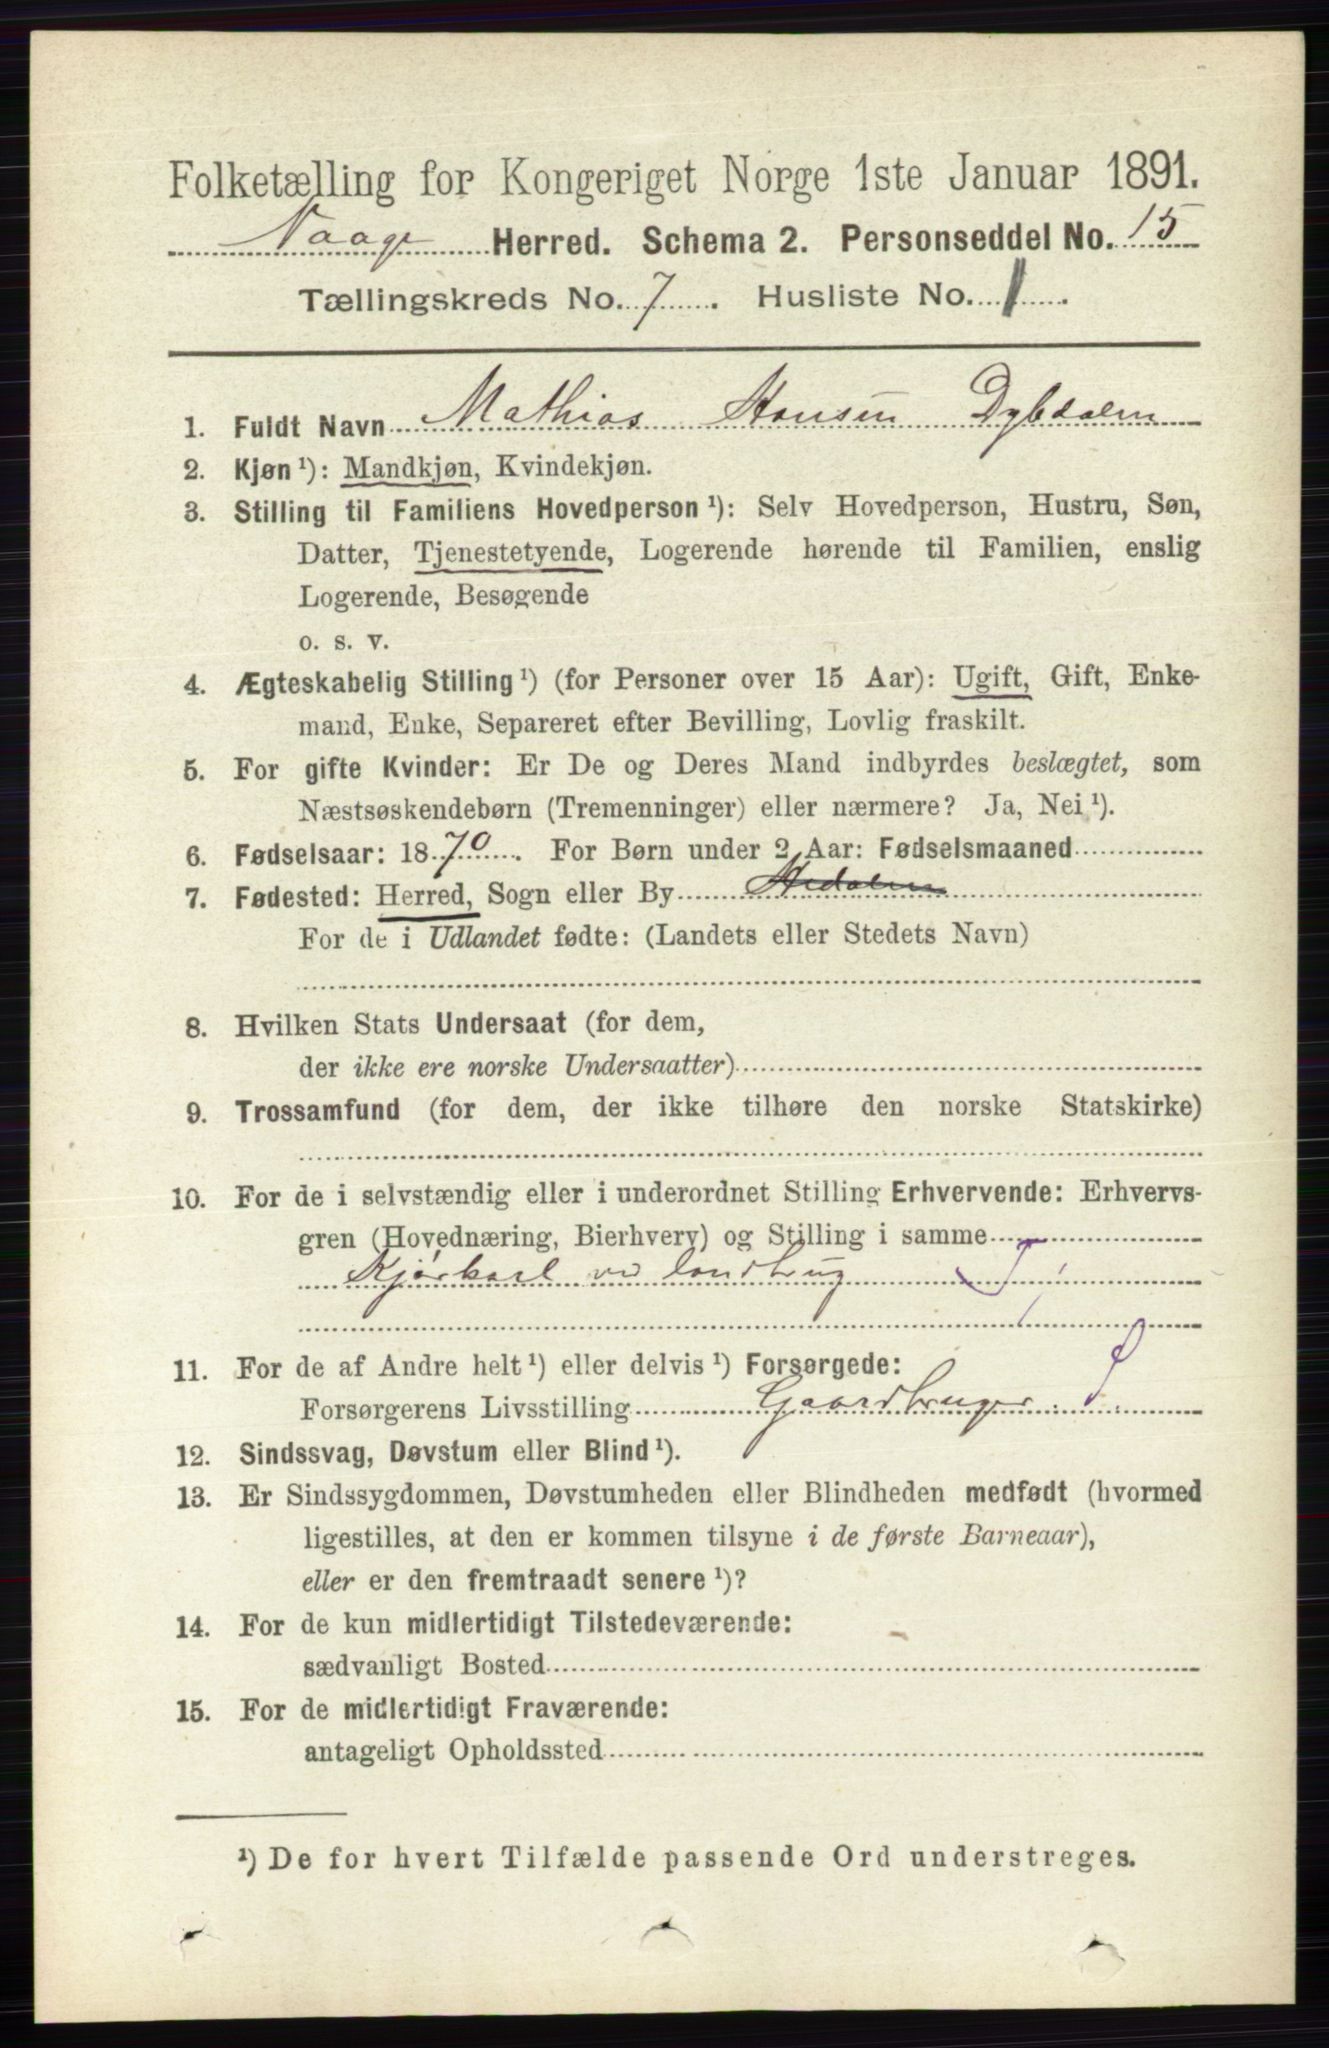 Folketælling for Kongeriget Norge 1ste Januar 1891.
Vaage Herred. Schema 2. Personseddel No. 15
Tællingskreds No. 7. Husliste No. 1.
1. Fuldt Navn Mathias Hansen Dybdalen
2. Kjøn ¹): Mandkjøn, Kvindekjøn.
3. Stilling til Familiens Hovedperson ¹): Selv Hovedperson, Hustru, Søn,
Datter, Tjenestetyende, Logerende hørende til Familien, enslig
Logerende, Besøgende
o. s. v.
4. Ægteskabelig Stilling ¹) (for Personer over 15 Aar): Ugift, Gift, Enke-
mand, Enke, Separeret efter Bevilling, Lovlig fraskilt.
5. For gifte Kvinder: Er De og Deres Mand indbyrdes beslægtet, som
Næstsøskendebørn (Tremenninger) eller nærmere? Ja, Nei ¹).
6. Fødselsaar: 1870. For Børn under 2 Aar: Fødselsmaaned
7. Fødested: Herred, Sogn eller By Hedalen
For de i Udlandet fødte: (Landets eller Stedets Navn)
8. Hvilken Stats Undersaat (for dem,
der ikke ere norske Undersaatter)
9. Trossamfund (for dem, der ikke tilhøre den norske Statskirke)
10. For de i selvstændig eller i underordnet Stilling Erhvervende: Erhvervs-
gren (Hovednæring, Bierhverv) og Stilling i samme
Kjørkarl ve landbrug
11. For de af Andre helt ¹) eller delvis ¹) Forsørgede:
Forsørgerens Livsstilling Gaardbruger
12. Sindssvag, Døvstum eller Blind ¹).
13. Er Sindssygdommen, Døvstumheden eller Blindheden medfødt (hvormed
ligestilles, at den er kommen tilsyne i de første Barneaar),
eller er den fremtraadt senere ¹)?
14. For de kun midlertidigt Tilstedeværende:
sædvanligt Bosted
15. For de midlertidigt Fraværende:
antageligt Opholdssted
¹) De for hvert Tilfælde passende Ord understreges.